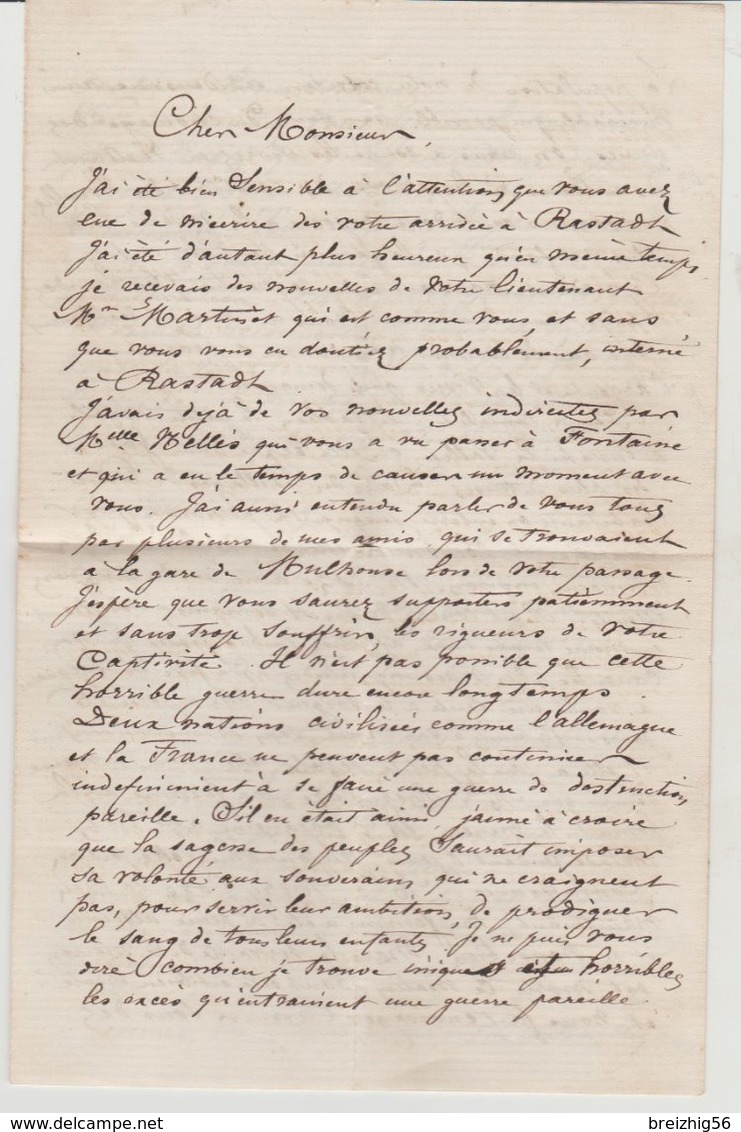 Cher Monsieur,
J'ai été bien sensible à l'attention que vous avez
eue de m'écrire dès votre arrivée à Rastadt
J'ai été d'autant plus heureux qu'en même temps
je recevais des nouvelles de votre lieutenant
Mr Martinet qui est comme vous, et sans
que vous vous en doutiez probablement, interné
à Rastadt.
J'avais dejà de vos nouvelles indirectes par
Melle Nellès qui vous a vu passer à Fontaine
et qui a eu le temps de causer un moment avec
vous. J'ai aussi entendu parler de vous tous
par plusieurs de mes amis qui se trouvaient
à la gare de Mulhouse lors de votre passage.
J'espère que vous saurez supporter patiemment
et sans trop souffrir, les rigueurs de votre
Captivité. Il n'est pas possible que cette
horrible guerre dure encore longtemps.
Deux nations civilisées comme l'allemagne
et la France ne peuvent pas continuer
indefiniment à se faire une guerre de destruction
pareille. S'il en était ainsi, j'aime à croire
que la sagesse des peuples saurait imposer
sa volonté aux souverains qui ne craignent
pas, pour servir leur ambition, de prodiguer
le sang de tous leurs enfants. Je ne puis vous
dire combien je trouve iniques et horribles
les excès qu'entrainent une guerre pareille
breizhig56